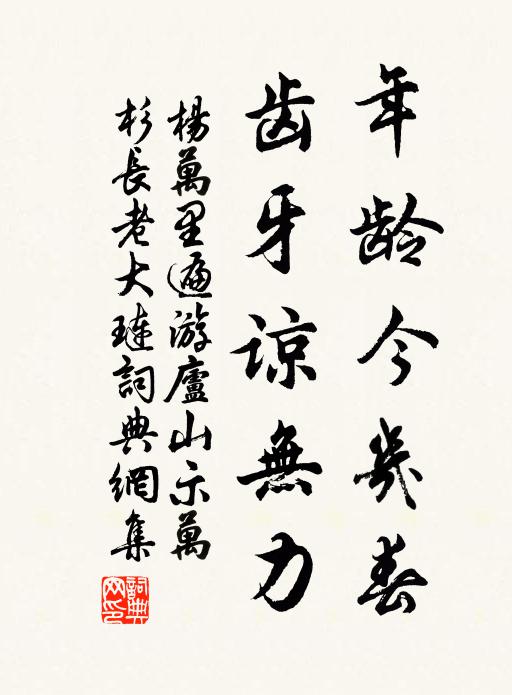 年龄今幾春
齿牙谅無力
楊萬里遍游廬山示萬
杉長老大璉詞典網集
詞典